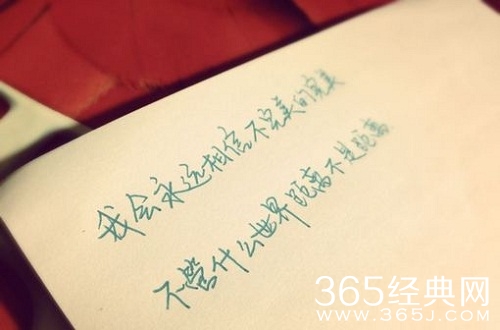 我会永远相信不完美的完美
不管什么世界距离不是距离
365经典网
www.365J.com